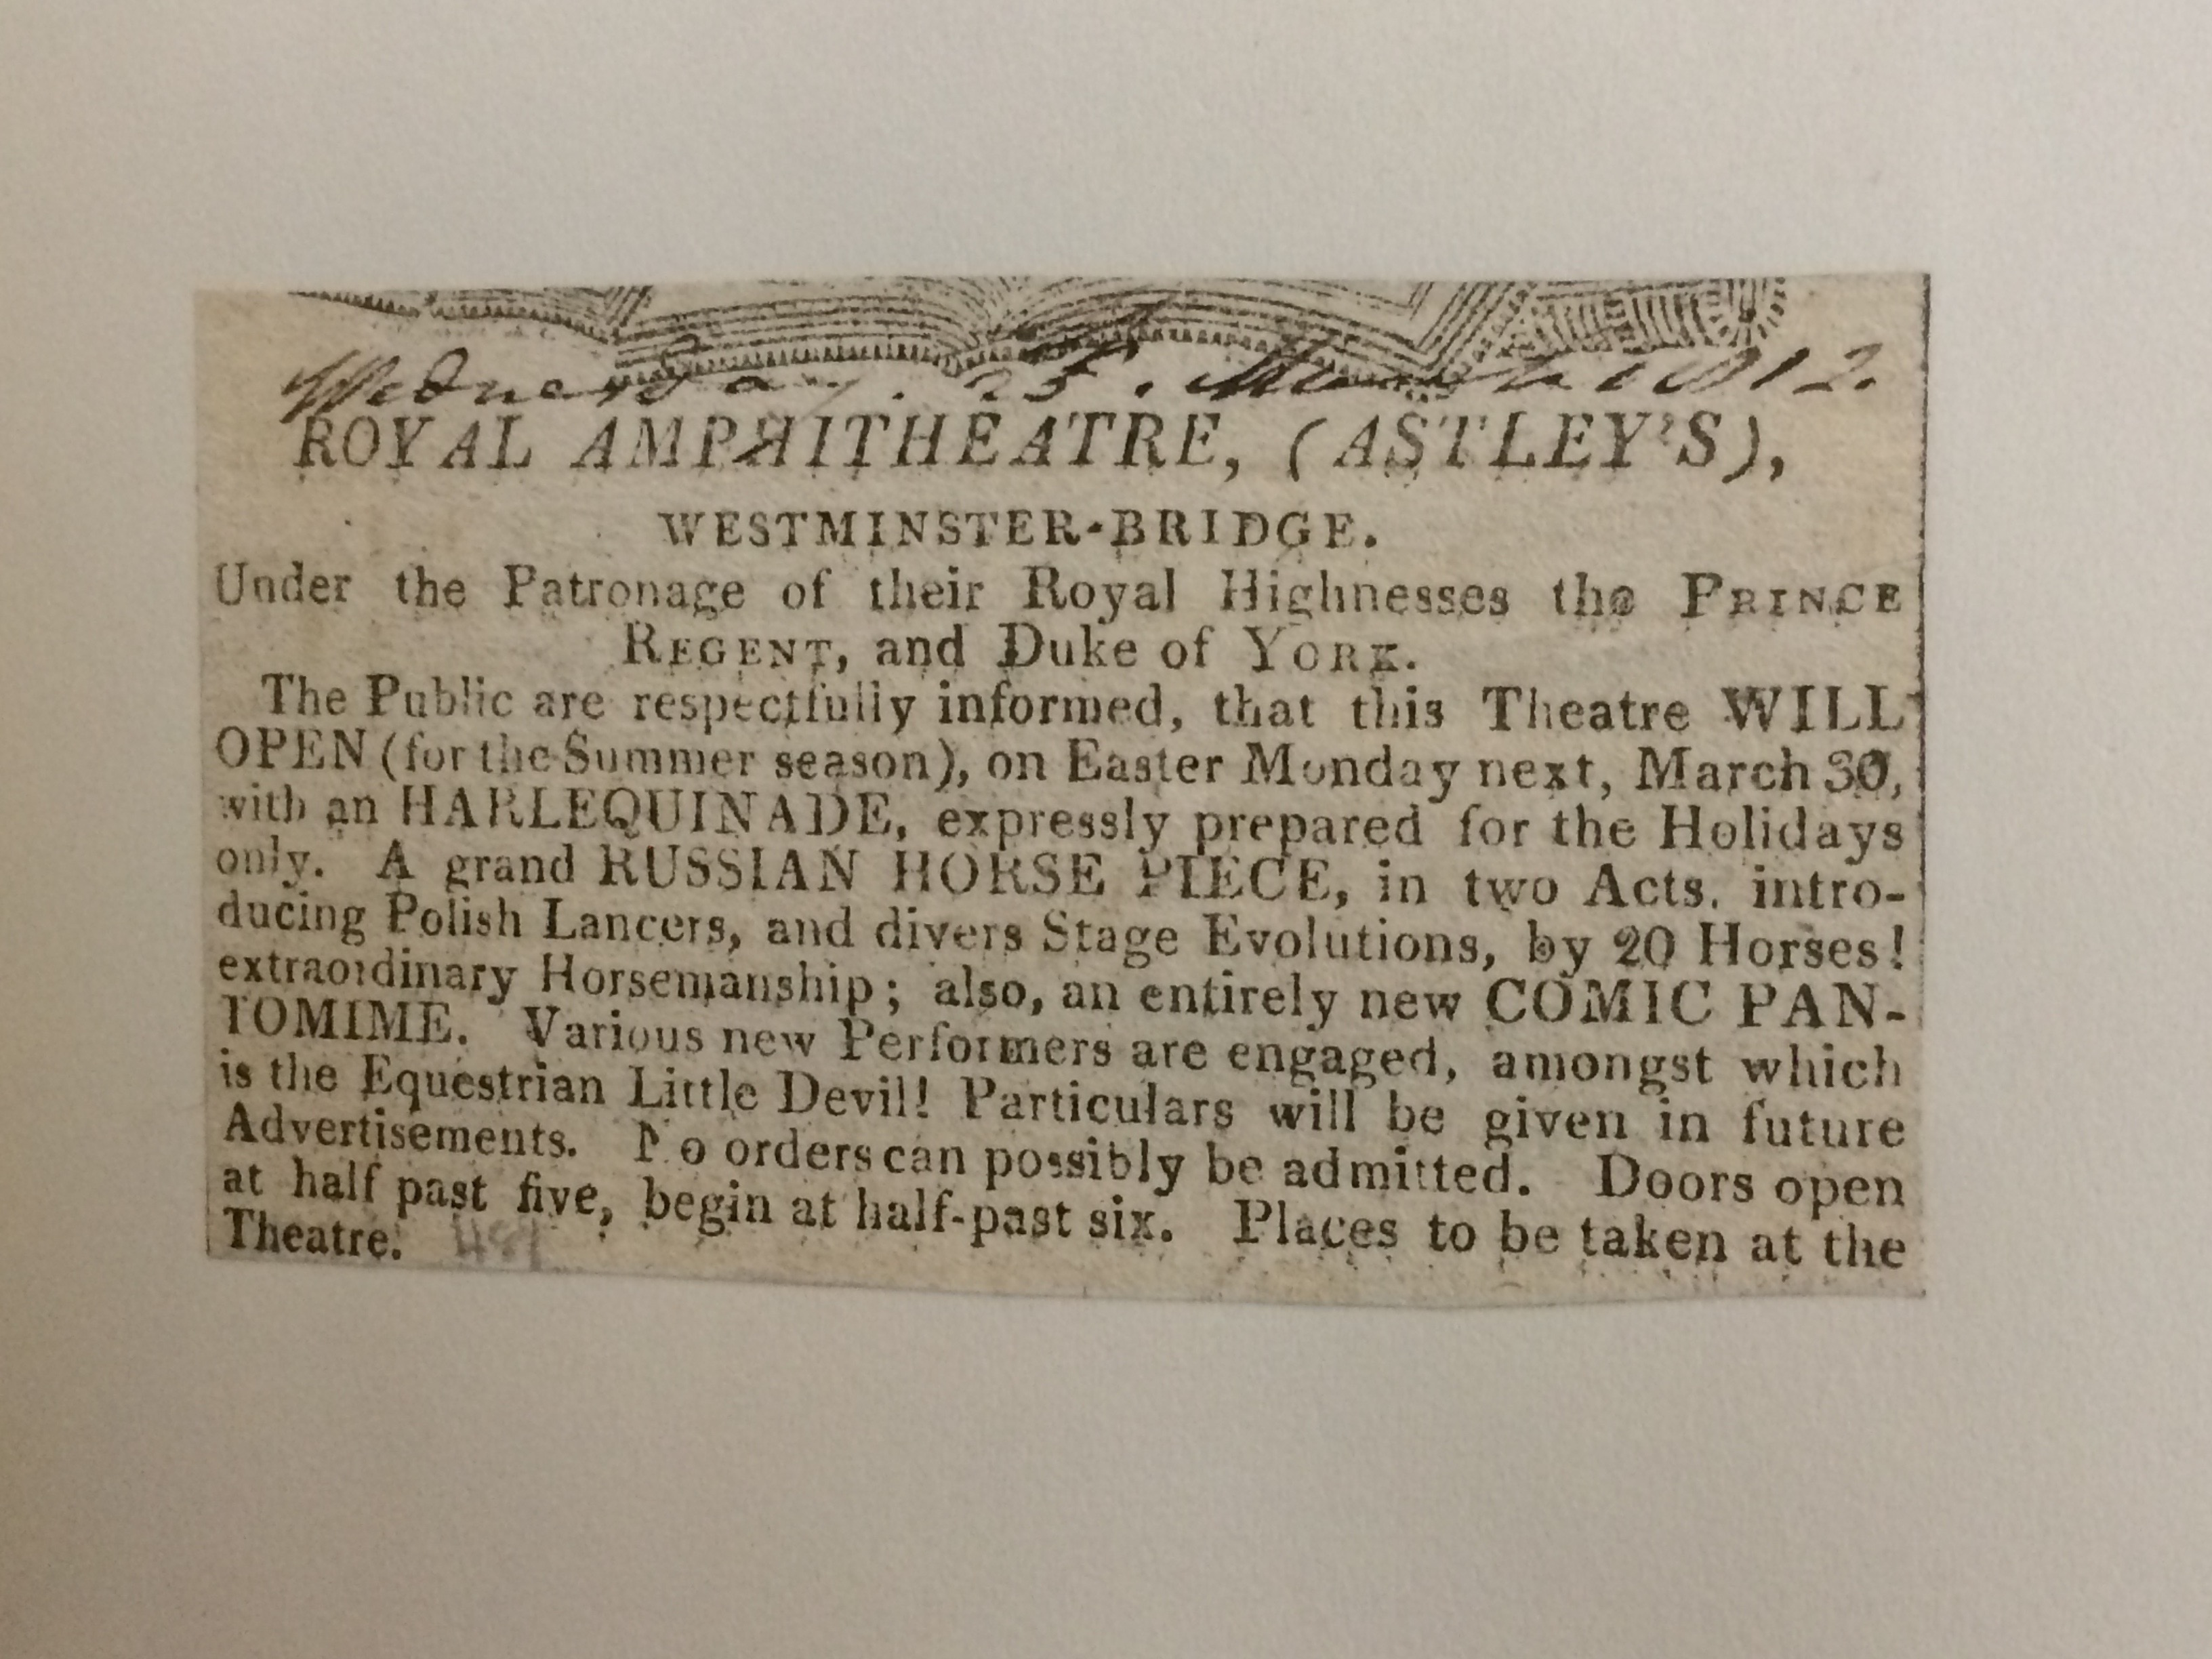 Wednesday. 25. March 1812.
ROYAL AMPHITHEATRE, (ASTLEY'S),
WESTMINSTER-BRIDGE.
Under the Patronage of their Royal Highnesses the PRINCE
REGENT, and Duke of YORK.
The Public are respectfully informed, that this Theatre WILL
OPEN (for the Summer season), on Easter Monday next, March 30,
with an HARLEQUINADE, expressly prepared for the Holidays
only. A grand RUSSIAN HORSE PIECE, in two Acts. intro-
ducing Polish Lancers, and divers Stage Evolutions, by 20 Horses!
extraordinary Horsemanship; also, an entirely new COMIC PAN-
TOMIME. Various new Performers are engaged, amongst which
is the Equestrian Little Devil! Particulars will be given in future
Advertisements. No orders can possibly be admitted. Doors open
at half past five, begin at half-past six. Places to be taken at the
Theatre.